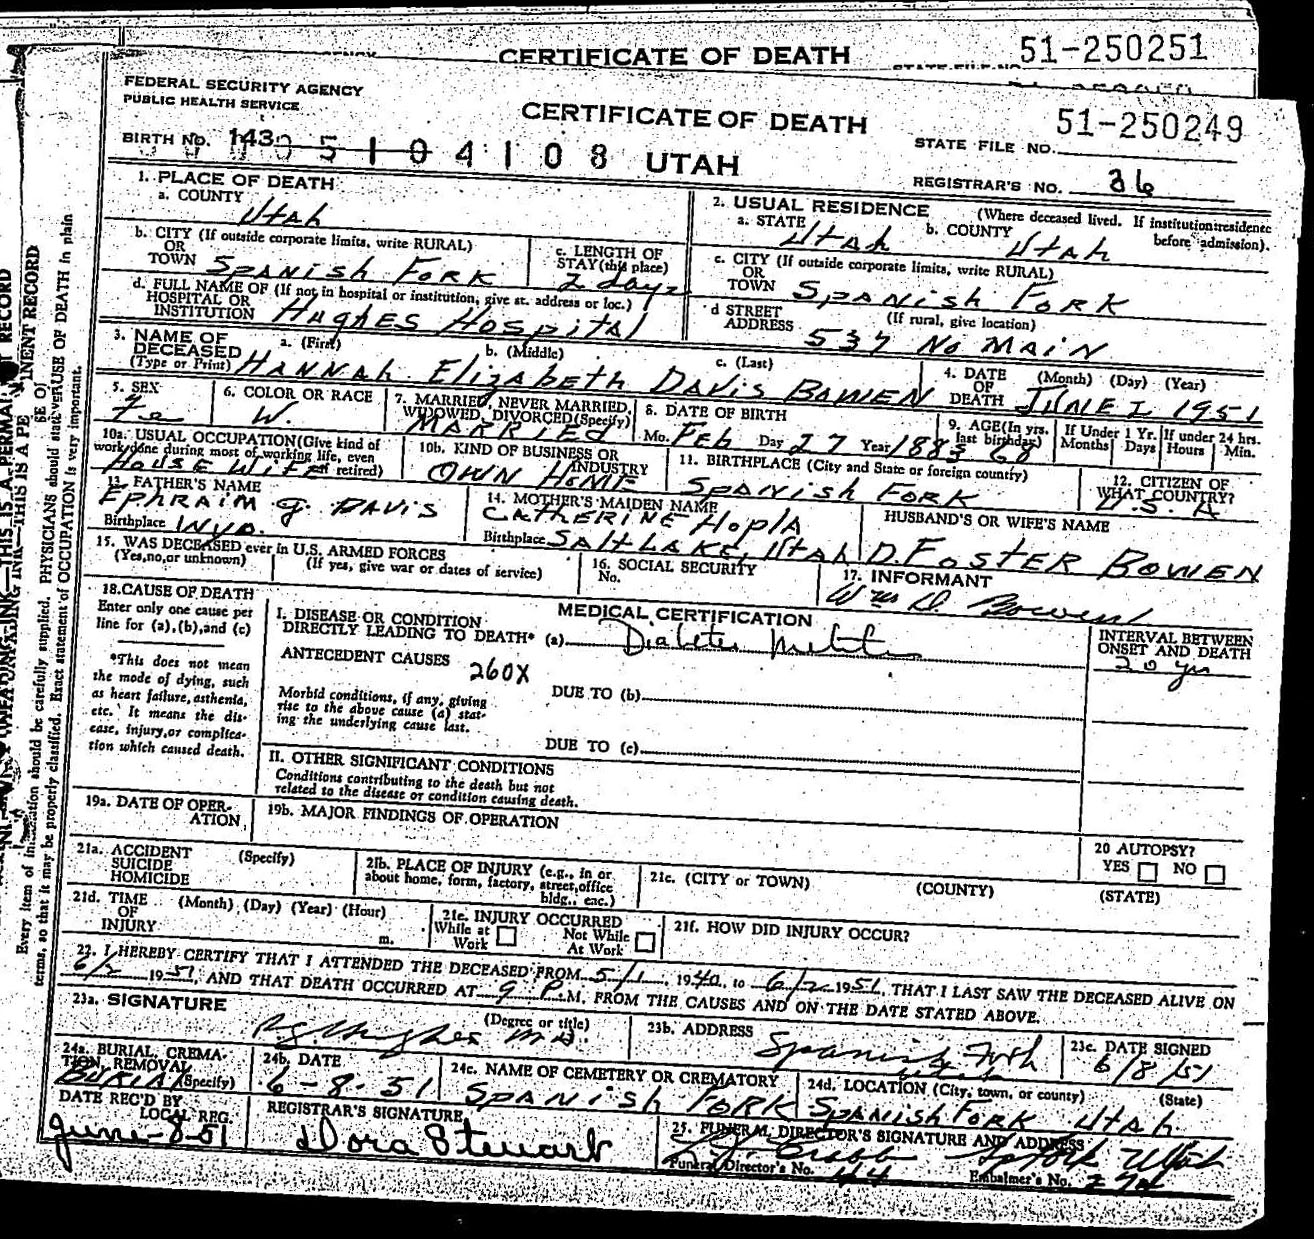 CERTIFICATE OF DEATH 51-250251
FEDERAL SECURITY AGENCY
PUBLIC HEALTH SERVICE
CERTIFICATE OF DEATH 51-250249
STATE FILE NO.
BIRTH NO. 143
5104108 UTAH
REGISTRAR'S NO. 36
1. PLACE OF DEATH
a. COUNTY Utah
2. USUAL RESIDENCE (Where deceased lived. If institution: residence before admission).
a. STATE Utah b. COUNTY Utah
b. CITY (If outside corporate limits, write RURAL)
OR
TOWN Spanish Fork
c. LENGTH OF
STAY (this place)
2 days
c. CITY (If outside corporate limits, write RURAL)
OR
TOWN Spanish Fork
d. FULL NAME OF (If not in hospital or institution, give st. address or loc.)
HOSPITAL OR
INSTITUTION Hughes Hospital
d STREET (If rural, give location)
ADDRESS 537 No MAIN
3. NAME OF
DECEASED
(Type or Print) a. (First) b. (Middle) c. (Last)
HANNAH Elizabeth DAVIS BOWEN
4. DATE (Month) (Day) (Year)
OF
DEATH JUNE 2 1951
5. SEX
Fe
6. COLOR OR RACE
W.
7. MARRIED, NEVER MARRIED,
WIDOWED, DIVORCED (Specify)
MARRIED
8. DATE OF BIRTH
Mo. Feb Day 27 Year 1883
9. AGE (In yrs.
last birthday)
68
If Under 1 Yr.
Months Days
If under 24 hrs.
Hours Min.
10a. USUAL OCCUPATION (Give kind of
work done during most of working life, even
if retired)
House Wife
10b. KIND OF BUSINESS OR
INDUSTRY
OWN HOME
11. BIRTHPLACE (City and State or foreign country)
SPANISH FORK
12. CITIZEN OF
WHAT COUNTRY?
U.S.A
13. FATHER'S NAME
EPHRAIM G. DAVIS
Birthplace Wyo.
14. MOTHER'S MAIDEN NAME
CATHERINE HOPLA
Birthplace SALT LAKE, Utah
HUSBAND'S OR WIFE'S NAME
D. FOSTER BOWEN
15. WAS DECEASED ever in U.S. ARMED FORCES
(Yes, no, or unknown) (If yes, give war or dates of service)
16. SOCIAL SECURITY
No.
17. INFORMANT
Wm D. Bowen
18. CAUSE OF DEATH
Enter only one cause per
line for (a), (b), and (c)
*This does not mean
the mode of dying, such
as heart failure, asthenia,
etc. It means the dis-
ease, injury, or complica-
tion which caused death.
MEDICAL CERTIFICATION
I. DISEASE OR CONDITION
DIRECTLY LEADING TO DEATH* (a) Diabetes Melitus
INTERVAL BETWEEN
ONSET AND DEATH
20 yrs
ANTECEDENT CAUSES
260X
Morbid conditions, if any, giving
rise to the above cause (a) stat-
ing the underlying cause last.
DUE TO (b)
DUE TO (c)
II. OTHER SIGNIFICANT CONDITIONS
Conditions contributing to the death but not
related to the disease or condition causing death.
19a. DATE OF OPER-
ATION
19b. MAJOR FINDINGS OF OPERATION
20 AUTOPSY?
YES NO
21a. ACCIDENT (Specify)
SUICIDE
HOMICIDE
21b. PLACE OF INJURY (e.g., in or
about home, form, factory, street, office
bldg., eac.)
21c. (CITY or TOWN) (COUNTY) (STATE)
21d. TIME (Month) (Day) (Year) (Hour)
OF
INJURY m.
21e. INJURY OCCURRED
While at Work Not While At Work
21f. HOW DID INJURY OCCUR?
22. I HEREBY CERTIFY THAT I ATTENDED THE DECEASED FROM 5/1, 1940, to 6/2 1951, THAT I LAST SAW THE DECEASED ALIVE ON
6/2 1951, AND THAT DEATH OCCURRED AT 9 P.M, FROM THE CAUSES AND ON THE DATE STATED ABOVE.
23a. SIGNATURE (Degree or title)
Hughes M.D.
23b. ADDRESS
Spanish Fork
Utah
23c. DATE SIGNED
6/8/51
24a. BURIAL, CREMA-
TION, REMOVAL
(Specify)
BURIAL
24b. DATE
6-8-51
24c. NAME OF CEMETERY OR CREMATORY
SPANISH FORK
24d. LOCATION (City, town, or county) (State)
SPANISH FORK UTAH
DATE REC'D BY
LOCAL REG.
June-8-51
REGISTRAR'S SIGNATURE
Dora Stewart
25. FUNERAL DIRECTOR'S SIGNATURE AND ADDRESS
Sp Fork Utah
Funeral Director's No. 44
Embalmer's No.
THIS IS A PERMANENT RECORD
Every item of information should be carefully supplied. PHYSICIANS should state CAUSE OF DEATH in plain
terms, so that it may be properly classified. Exact statement of OCCUPATION is very important.